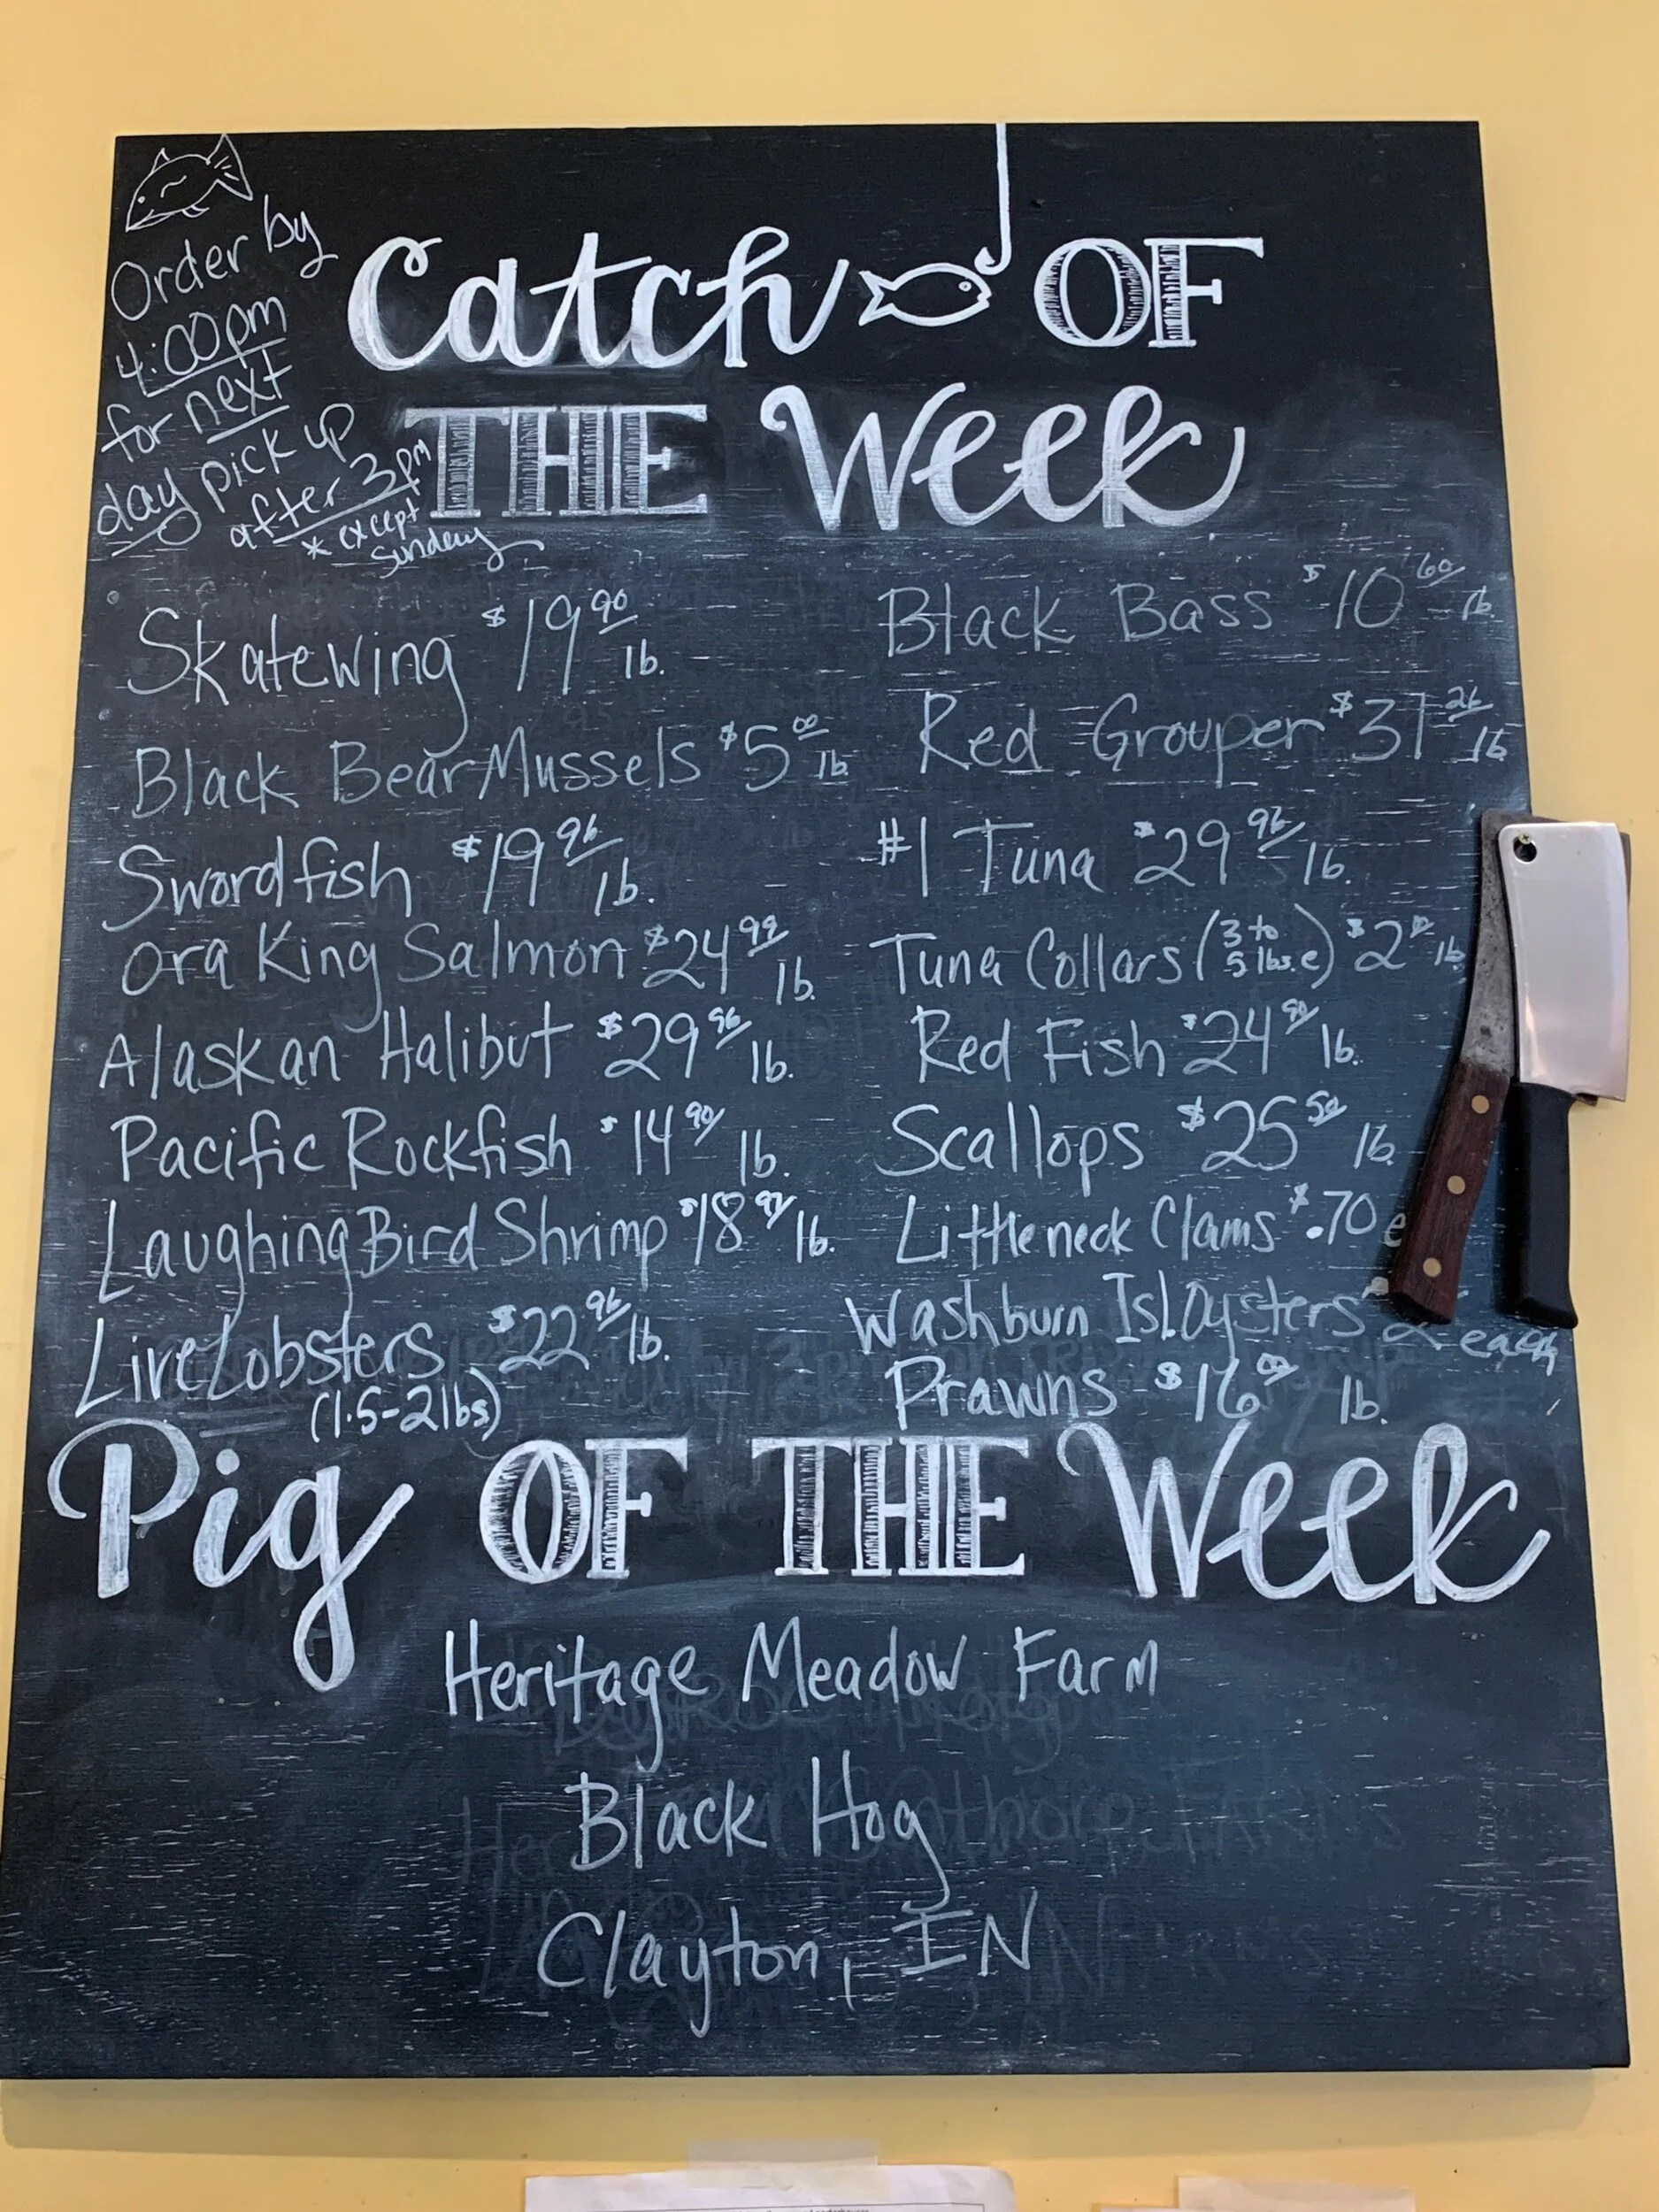 Order by
4:00pm
for next
day pick up
after 3pm
* except
Sunday
Catch OF
THE Week
Skatewing $19 90 lb.
Black Bear Mussels $5 00 lb.
Swordfish $19 96 lb.
Ora King Salmon $24 99 lb.
Alaskan Halibut $29 96 lb.
Pacific Rockfish $14 90 lb.
Laughing Bird Shrimp $18 97 lb.
Live Lobsters $22 96 lb.
(1.5-2lbs)
Black Bass $10 60 lb
Red Grouper $31 26 lb
#1 Tuna $29 96 lb.
Tuna Collars (3 to 5 lbs. e) $2 lb
Red Fish $24 90 lb.
Scallops $25 50 lb.
Littleneck Clams $.70 e
Washburn Isl. Oysters 2 each
Prawns $16 00 lb.
Pig OF THE Week
Heritage Meadow Farm
Black Hog
Clayton, IN